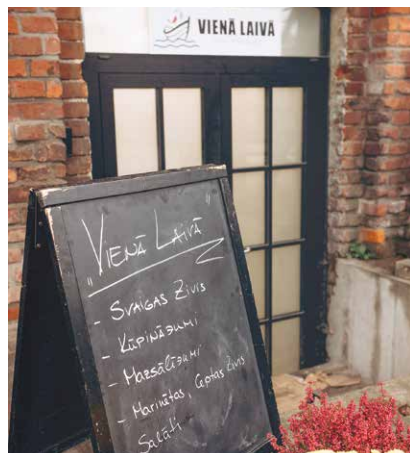 VIENĀ LAIVĀ
"VIENĀ LAIVĀ"
- SVAIGAS ZIVIS
- KŪPINĀJUMI
- MAZSĀLĪJUMI
- Marinētas, Ceptas Zivis
Salāti